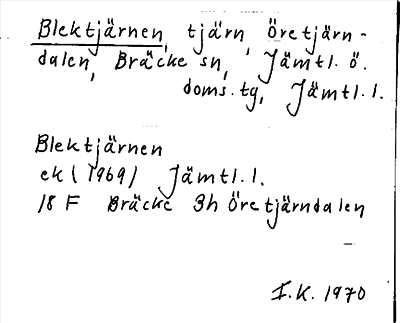 Blektjärnen, tjärn, Öretjärn-
dalen, Bräcke sn, Jämtl. ö.
doms.tg, Jämtl.l.
Blektjärnen
ek (1969) Jämtl.l.
18 F Bräcke 3h Öretjärndalen
I.K. 1970